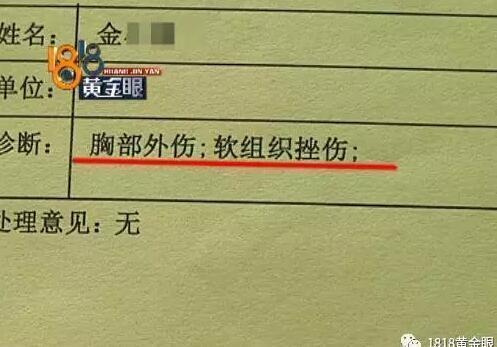 姓名: 金
1818
HUANG JIN YAN
黄金眼
单位:
诊断: 胸部外伤;软组织挫伤;
处理意见:无
1818黄金眼